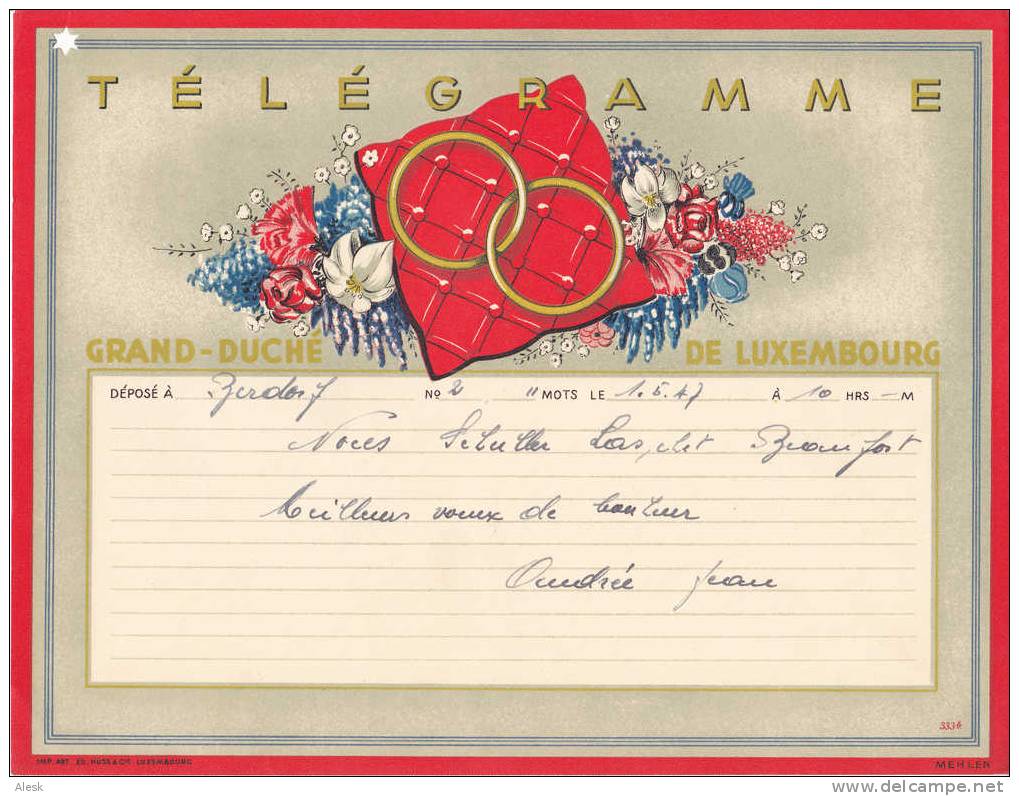 TÉLÉGRAMME
GRAND-DUCHÉ DE LUXEMBOURG
DÉPOSÉ À Berdorf No 2 11 MOTS LE 1.5.47 À 10 HRS – M
Noces Schiller Beaufort
Meilleurs voeux de bonheur
Andrée Jean
333 b
IMP. ART. ED. HUSS & Cie LUXEMBOURG
MEHLEN
Alesk
http://www.delcampe.net